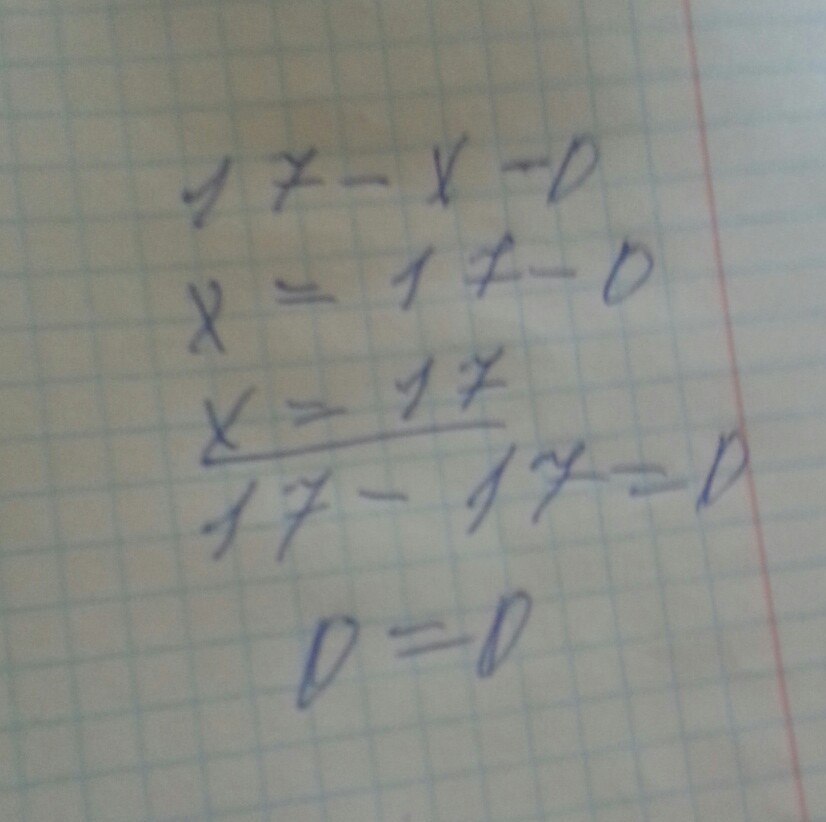 17 - x - 0
x = 17 - 0
x = 17
17 - 17 = 0
0 = 0